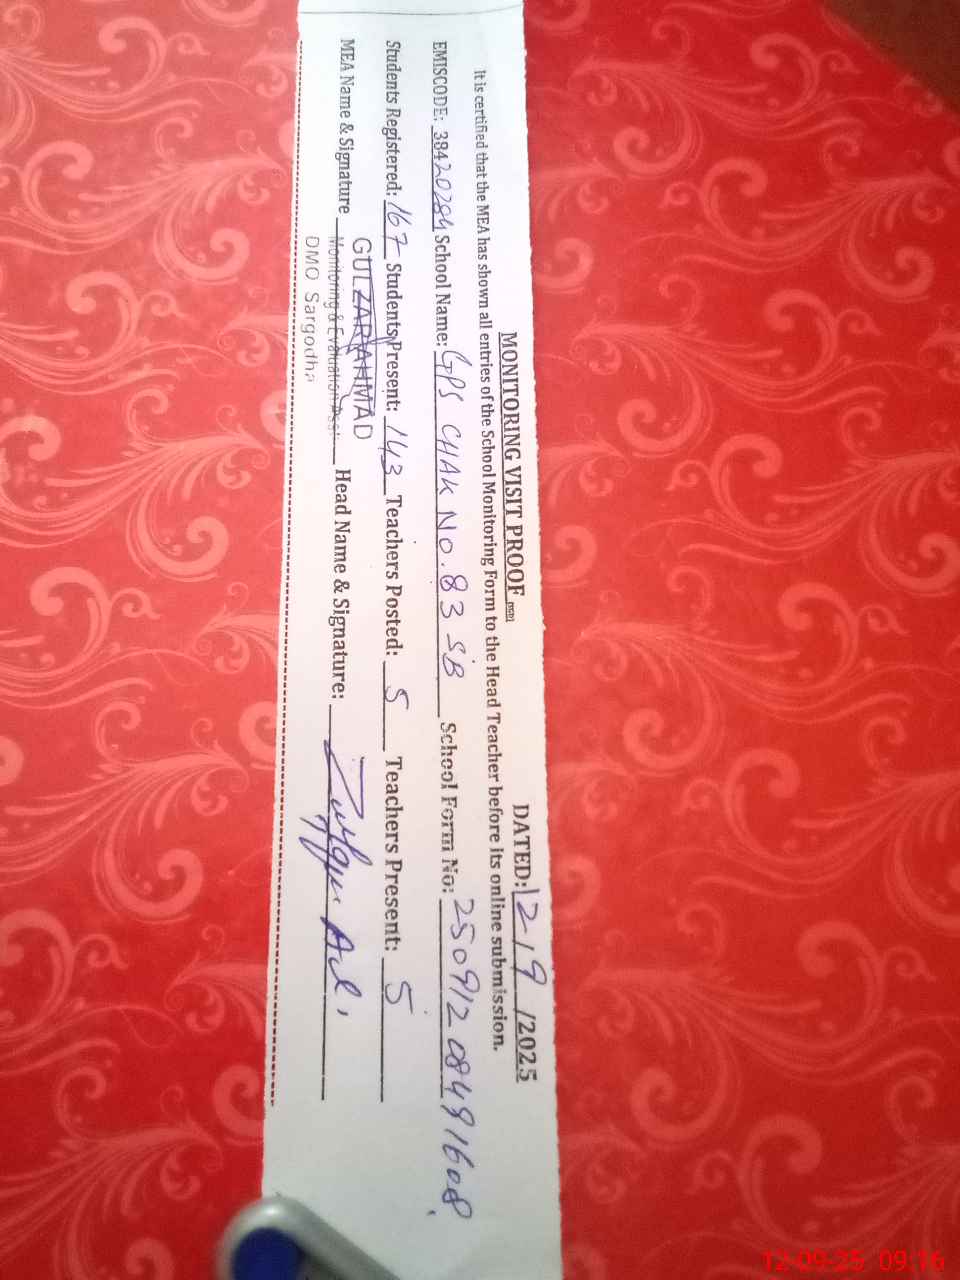 MONITORING VISIT PROOF DATED: 12/9/2025
It is certified that the MEA has shown all entries of the School Monitoring Form to the Head Teacher before its online submission.
EMISCODE: 38420284 School Name: GPS CHAK No. 83 SB School Form No: 25091208491608
Students Registered: 167 Students Present: 143 Teachers Posted: 5 Teachers Present: 5
GULZAR AHMAD
MEA Name & Signature Head Name & Signature:
Monitoring & Evaluation Asst:
DMO Sargodha
12-09-25 09:16